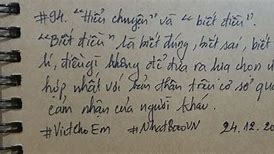 #94. "Hiểu chuyện" và "biết điều".
"Biết điều" là biết đúng, biết sai, biết
lí, điều gì không để đưa ra lựa chọn
hợp nhất với bản thân trên cơ sở
cảm nhận của người khác.
#ViếtChoEm #NhatBaoVN 24.12.20